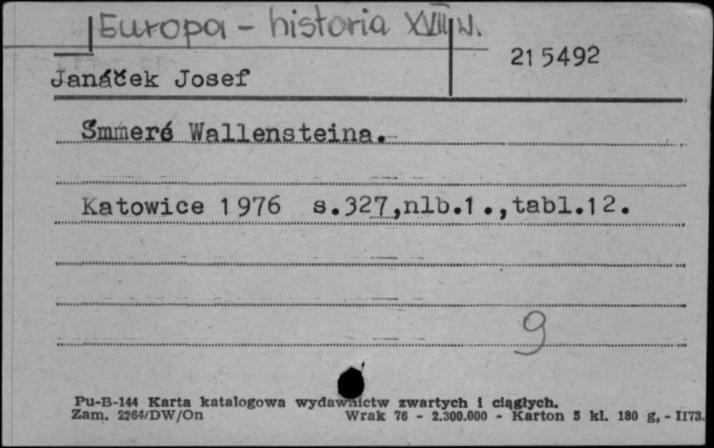 Europa - historia XVIII w.
215492
Janáček Josef
Smmeré Wallensteina.
Katowice 1976 s.327,nlb.1.,tabl.12.
9
Pu-B-144 Karta katalogowa wydawnictw zwartych i ciągłych.
Zam. 2264/DW/On Wrak 76 - 2.300.000 - Karton 5 kl. 180 g, - II73.